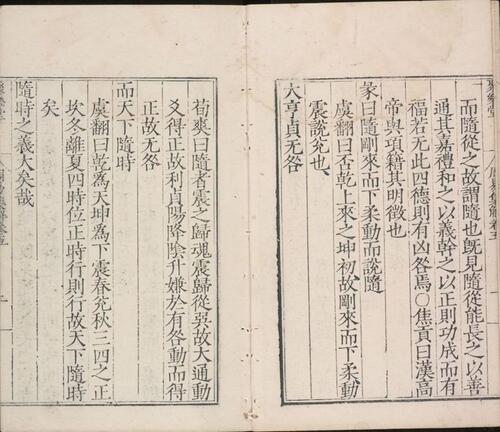 而隨從之故謂隨也既見隨從能長之以善
通其嘉禮和之以義幹之以正則功成而有
福若无此四德則有凶咎焉〇焦贛曰漢高
帝與項籍其明徵也
彖曰隨剛來而下柔動而說隨
虞翻曰否乾上來之坤初故剛來而下柔動
震說兌也
大亨貞无咎
荀爽曰隨者震之歸魂震歸從巽故大通動
爻得正故利貞陽降陰升嫌於有咎動而得
正故无咎
而天下隨時
虞翻曰乾為天坤為下震春兌秋三四之正
坎冬離夏四時位正時行則行故天下隨時
矣
隨時之義大矣哉